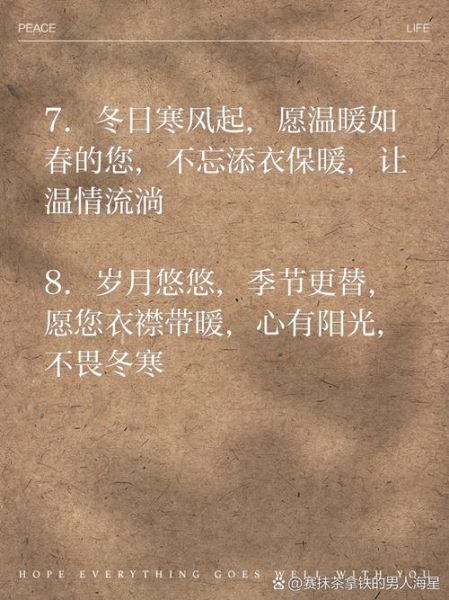 PEACE
LIFE
7. 冬日寒风起，愿温暖如
春的您，不忘添衣保暖，让
温情流淌
8. 岁月悠悠，季节更替，
愿您衣襟带暖，心有阳光，
不畏冬寒
HOPE EVERYTHING GOES WELL WITH YOU
@赛抹茶拿铁的男人海星